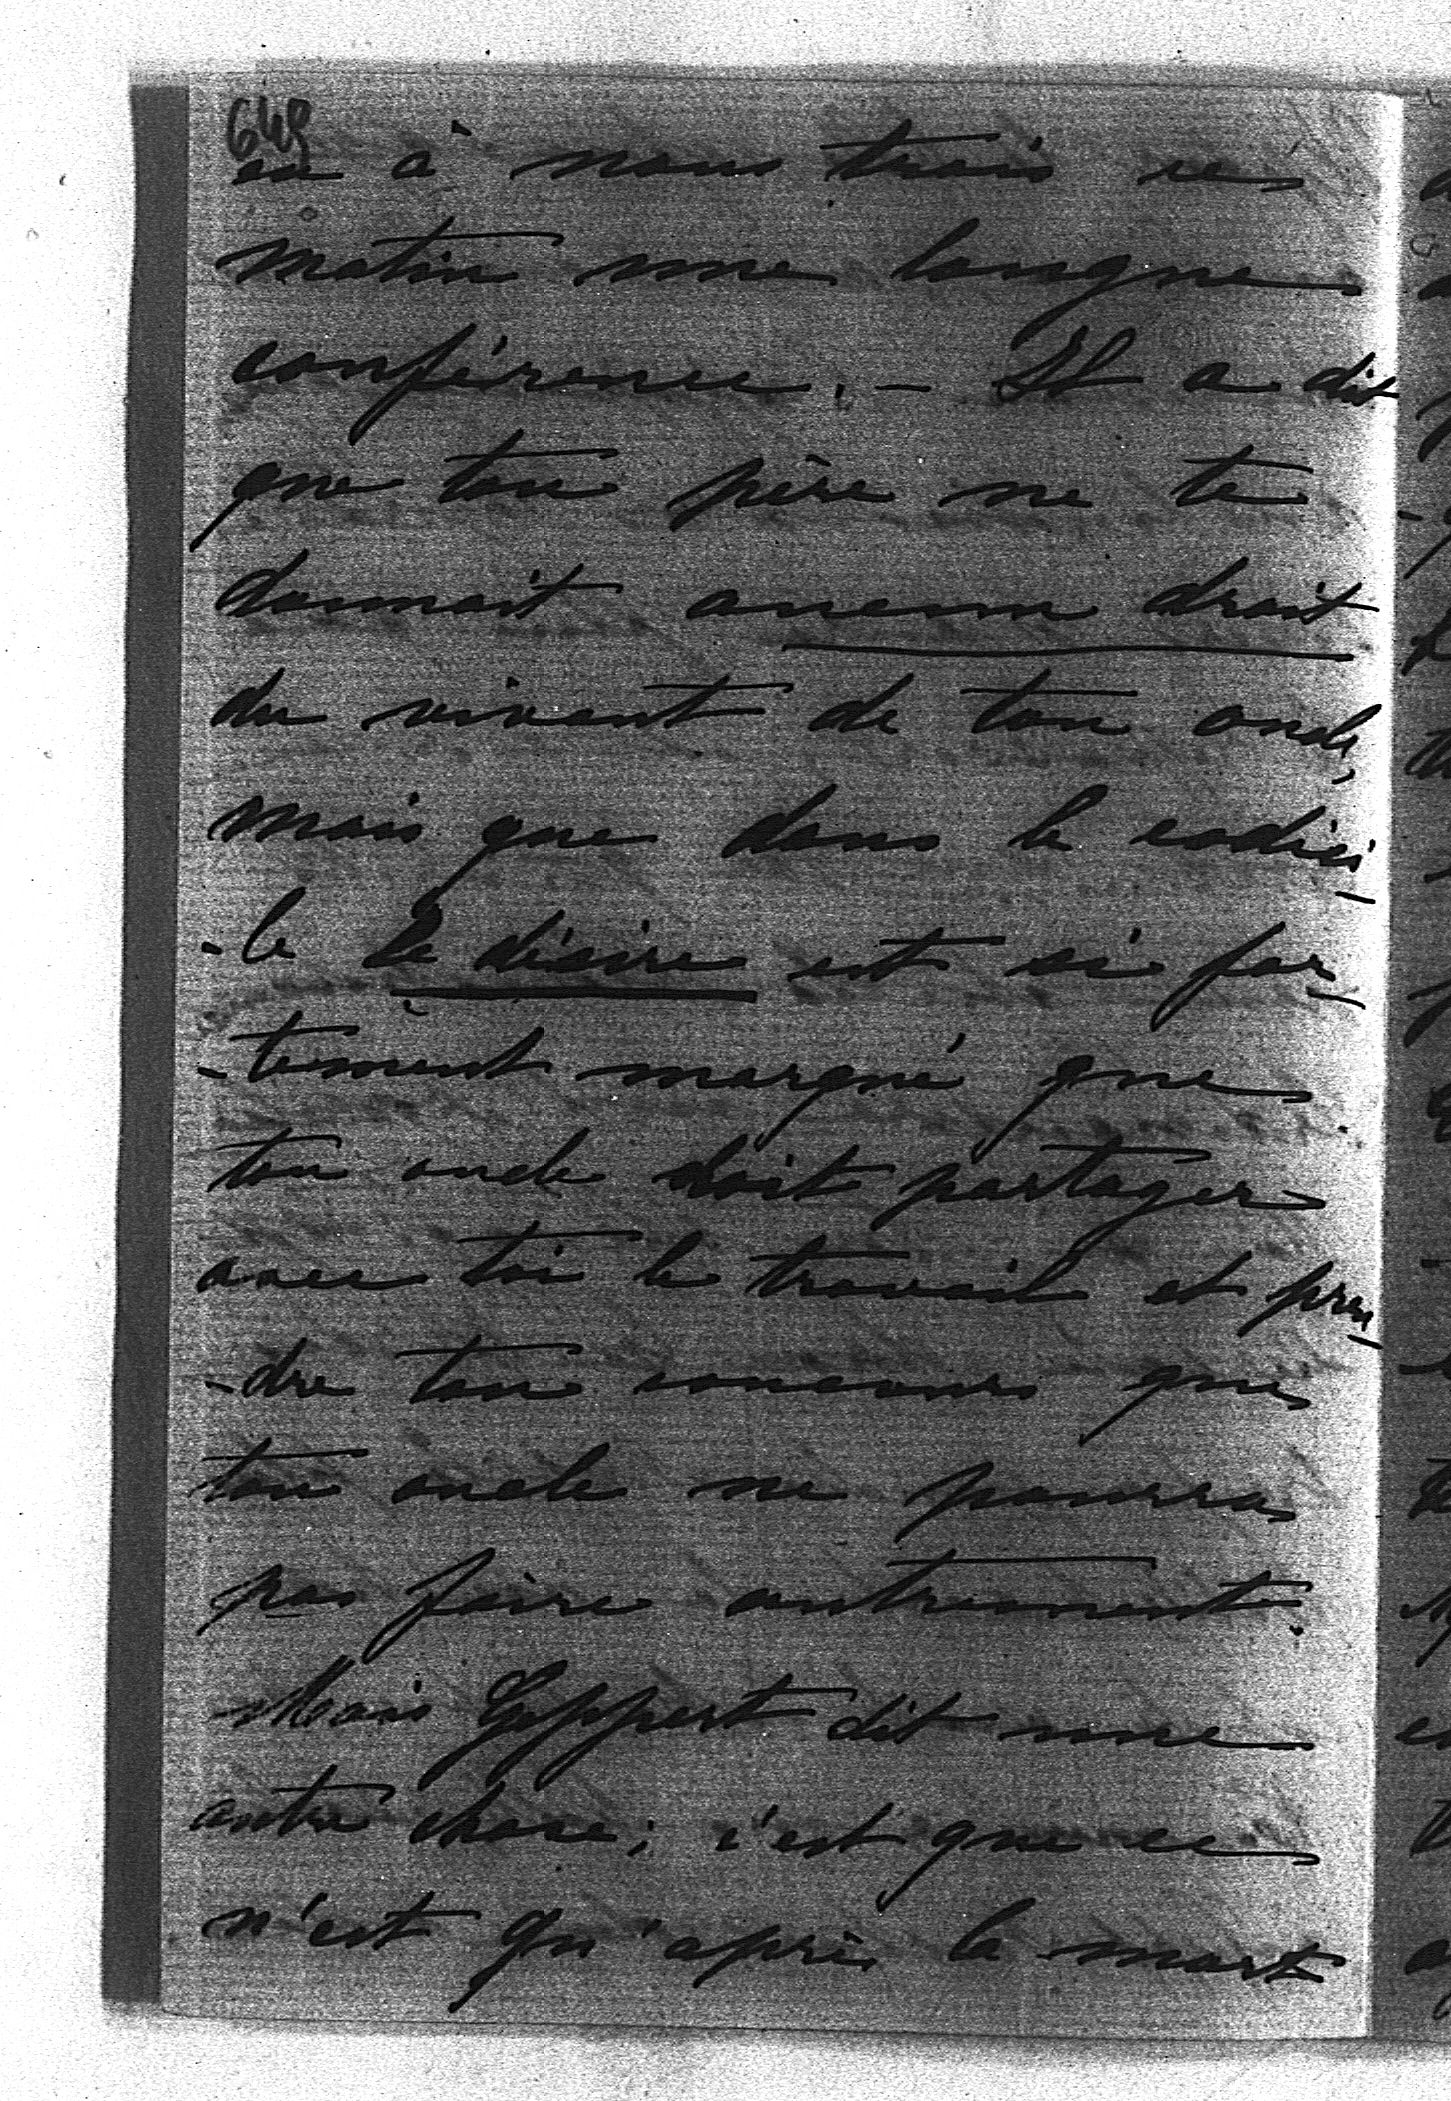 649
eu à nous trois ce
matin une longue
conférence. – Il a dit
que ton père ne te
donnait aucun droit
du vivant de ton oncle,
mais que dans le codici-
-le le désire est si for-
-tement marqué que
ton oncle doit partager
avec toi le travail et pren-
-dre ton concours que
ton oncle ne pourra
pas faire autrement.
Mais Gyppert dit une
autre chose; c'est que ce
n'est qu'après la mort